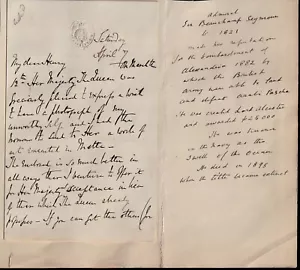 Saturday
April 7
My dear Henry
Her Majesty The Queen was
graciously pleased to express a wish
to have a photograph of my
unworthy self and I had the
one sent to Her a week
executed in Malta -
The enclosed is so much better in
all ways that I venture to offer it
for Her Majesty's acceptance in lieu
of the other which The Queen already
possesses - If you can get the other for
Admiral
Sir Beauchamp Seymour
b 1821
made his reputation
for the bombardment of
Alexandria 1882 by
which the British
Army were able to land
and defeat Arabi Pasha
He was created Lord Alcester
and awarded £25000
He was known
in the Navy as the
Swell of the Ocean
He died in 1895
When the title became extinct